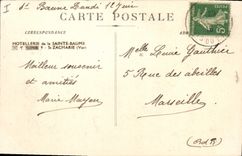 Ste Baume Lundi 12 Juin
CARTE POSTALE
HOTELLERIE DE LA SAINTE-BAUME
St ZACHARIE (Var)
Melle Lucie Gauthier
Meilleur souvenir
5 Rue des abeilles
et amitiés
Marseille
Marie Mayan
(B.d.R)